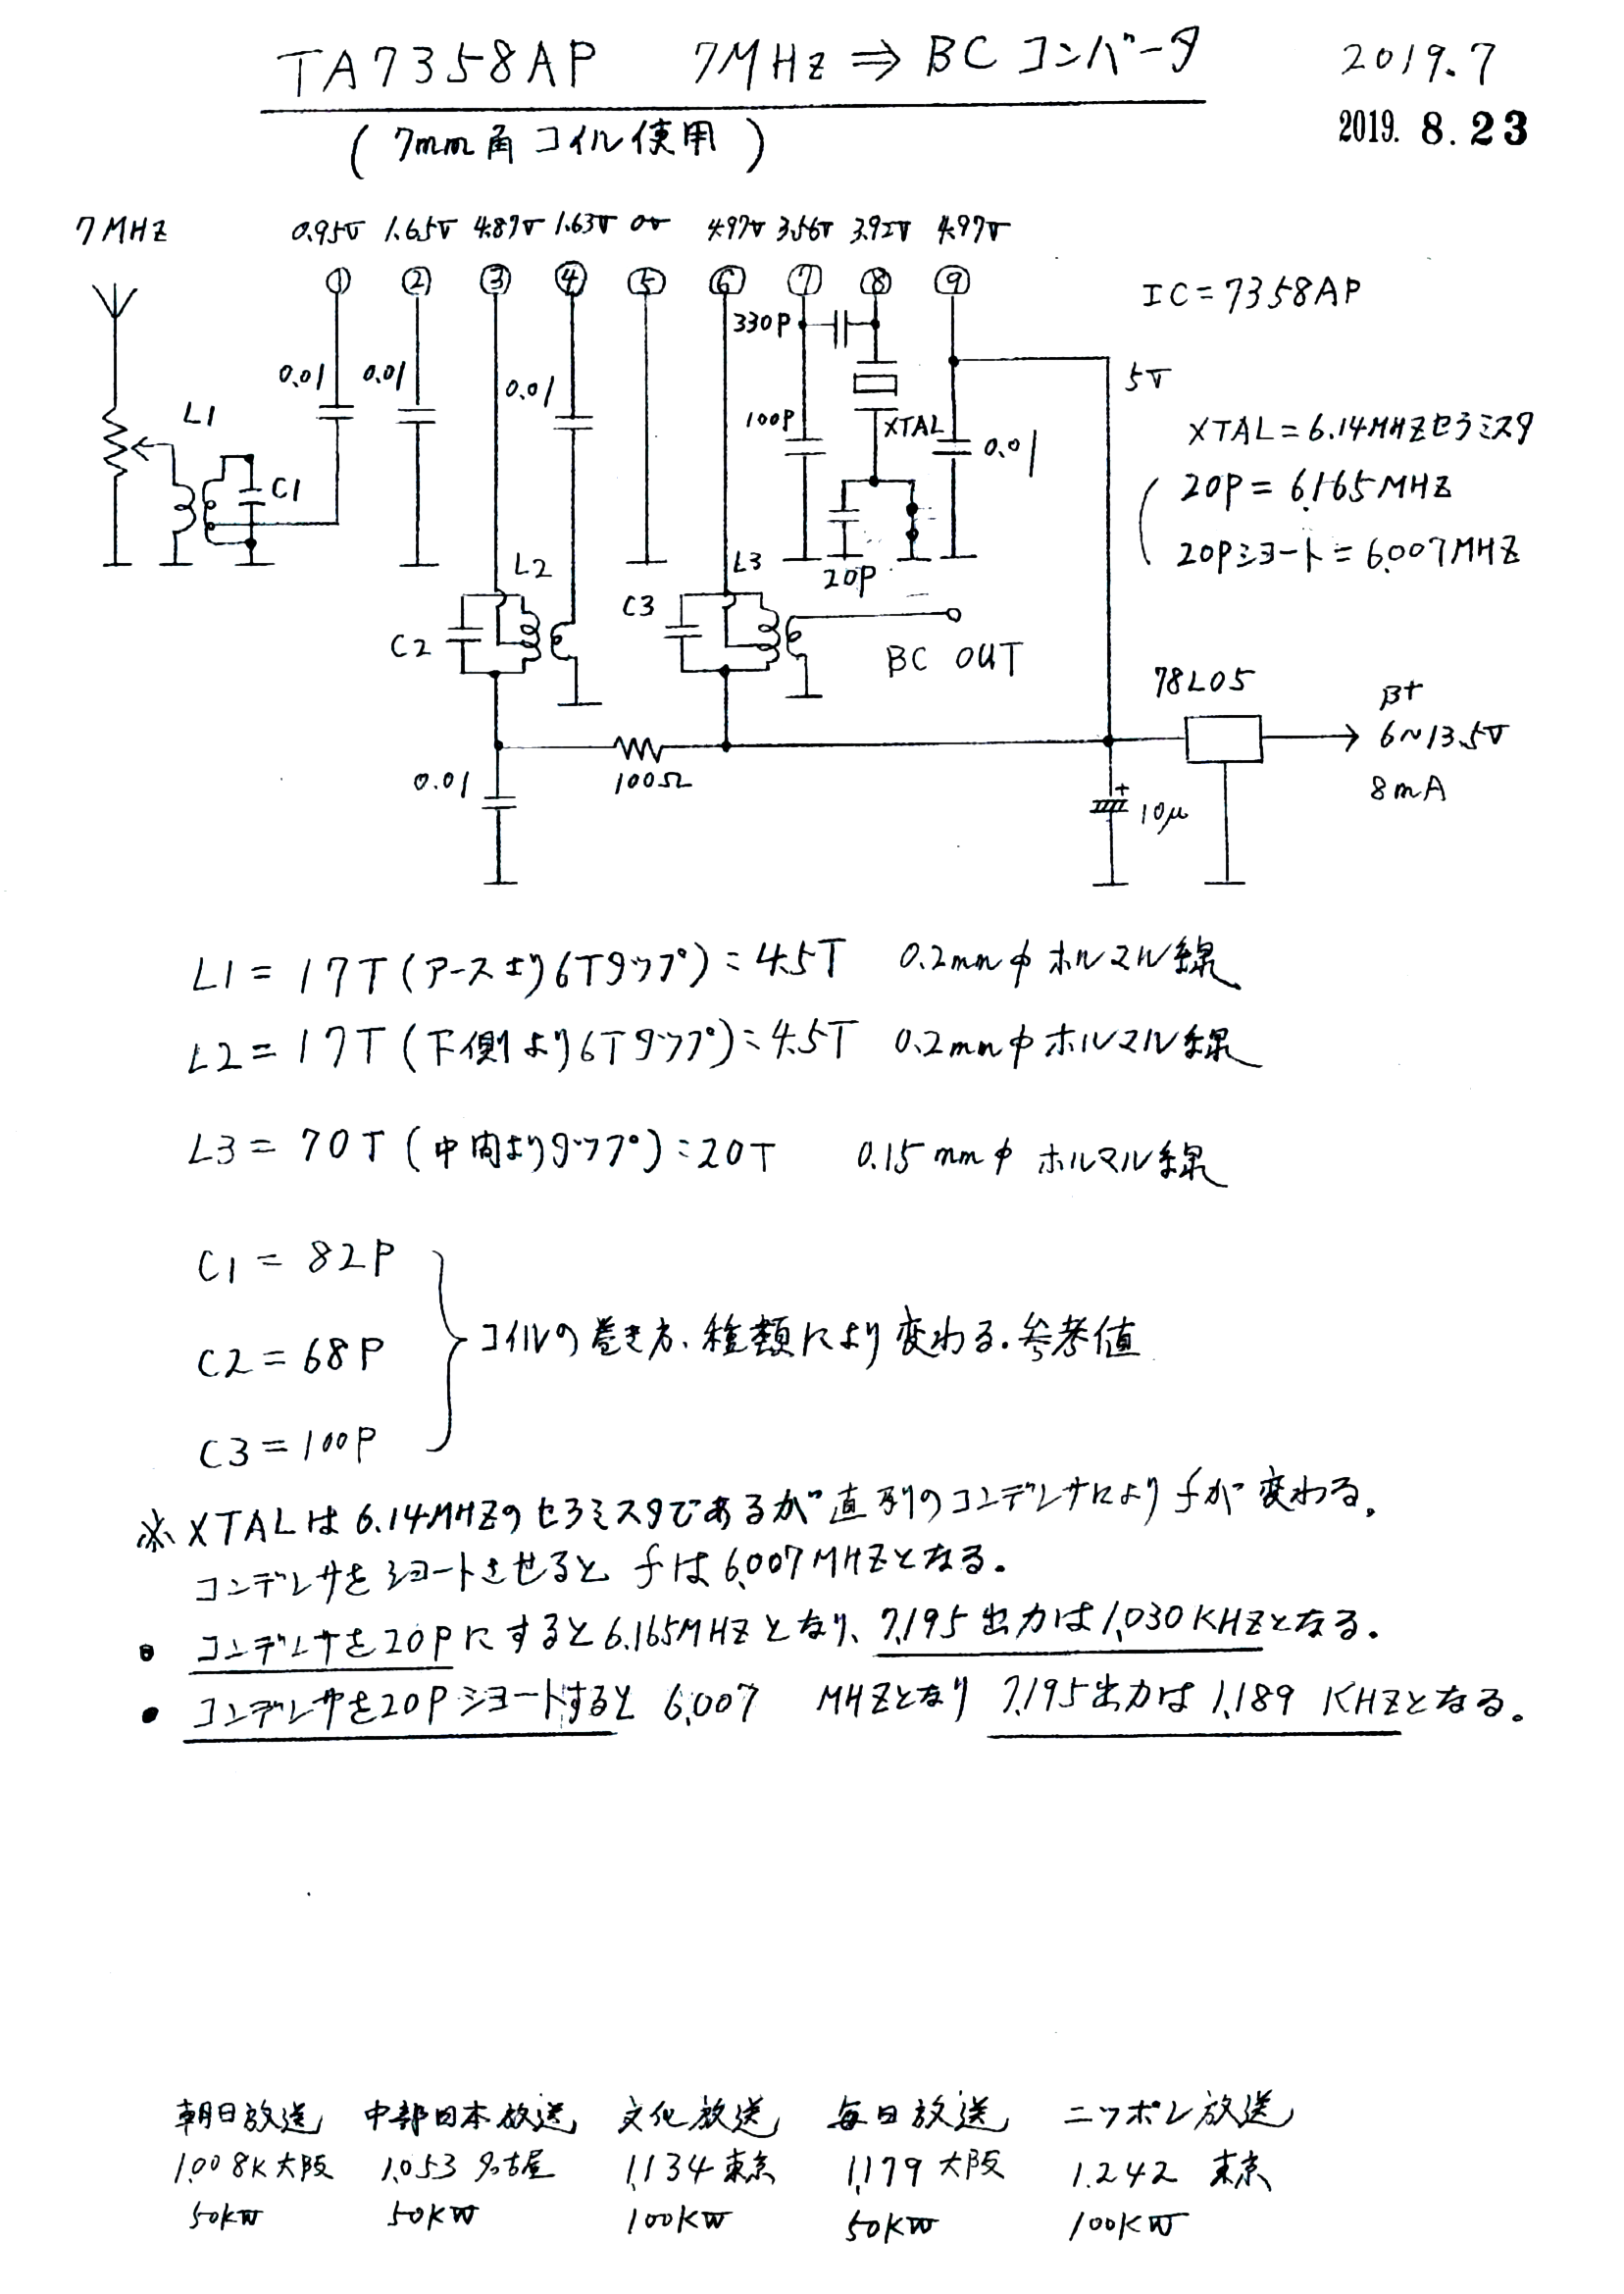 TA7358AP 7MHz ⇒ BC コンバータ 2019.7
(7mm角コイル使用) 2019. 8.23
7MHZ 0.95V 1.65V 4.87V 1.63V 0V 4.97V 3.56V 3.92V 4.97V
① ② ③ ④ ⑤ ⑥ ⑦ ⑧ ⑨
IC=7358AP
330P
0.01 0.01 0.01
5V
L1
100P XTAL 0.01
XTAL=6.14MHZセラミスタ
C1
20P=6.165MHZ
20Pショート=6.007MHZ
L2 L3 20P
C3
C2
BC OUT
78L05
B+
6~13.5V
0.01 100Ω
8mA
+
10μ
L1= 17T(アースより6Tタップ):4.5T 0.2mmφ ホルマル線
L2=17T(下側より6Tタップ):4.5T 0.2mmφ ホルマル線
L3= 70T(中間よりタップ):20T 0.15mmφ ホルマル線
C1= 82P
C2=68P
コイルの巻き方、種類により変わる.参考値
C3=100P
※ XTALは6.14MHZのセラミスタであるが直列のコンデンサによりfが変わる.
コンデンサをショートさせるとfは6.007MHZとなる.
• コンデンサを20Pにすると6.165MHZとなり、7,195出力は1,030KHZとなる.
• コンデンサを20Pショートすると 6.007 MHZとなり 7,195出力は1,189 KHZとなる。
朝日放送 中部日本放送 文化放送 毎日放送 ニッポン放送
1.008K大阪 1,053 名古屋 1,134東京 1,179 大阪 1.242 東京
50KW 50KW 100KW 50KW 100KW